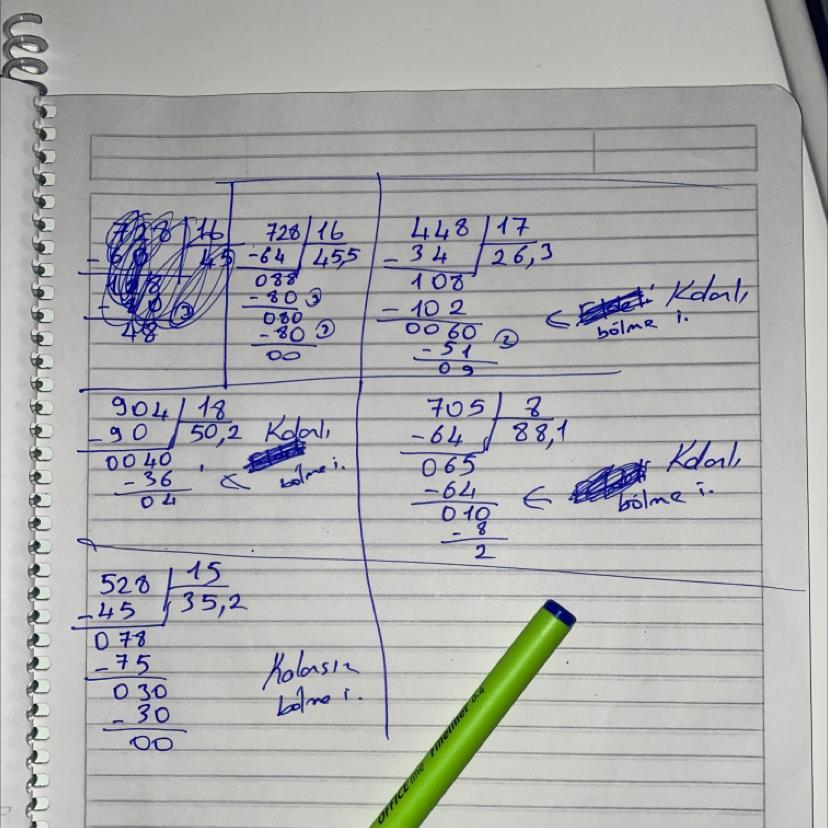 728 16
-64 45,5
088
-80
080
-80 2
00
448 17
-34 26,3
108
-102
0060
-51 2
09
Kalanlı
bölme i.
904 18
-90 50,2
0040
-36
04
Kalanlı
bölme i.
705 8
-64 88,1
065
-64
010
-8
2
Kalanlı
bölme i.
528 15
-45 35,2
078
-75
030
-30
00
Kalansız
bölme i.
OFFICE line Fineliner 0.4